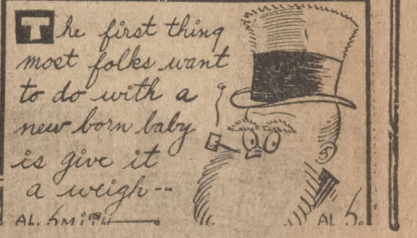 The first thing
most folks want
to do with a
new born baby
is give it
a weigh--
AL SMITH
AL S.